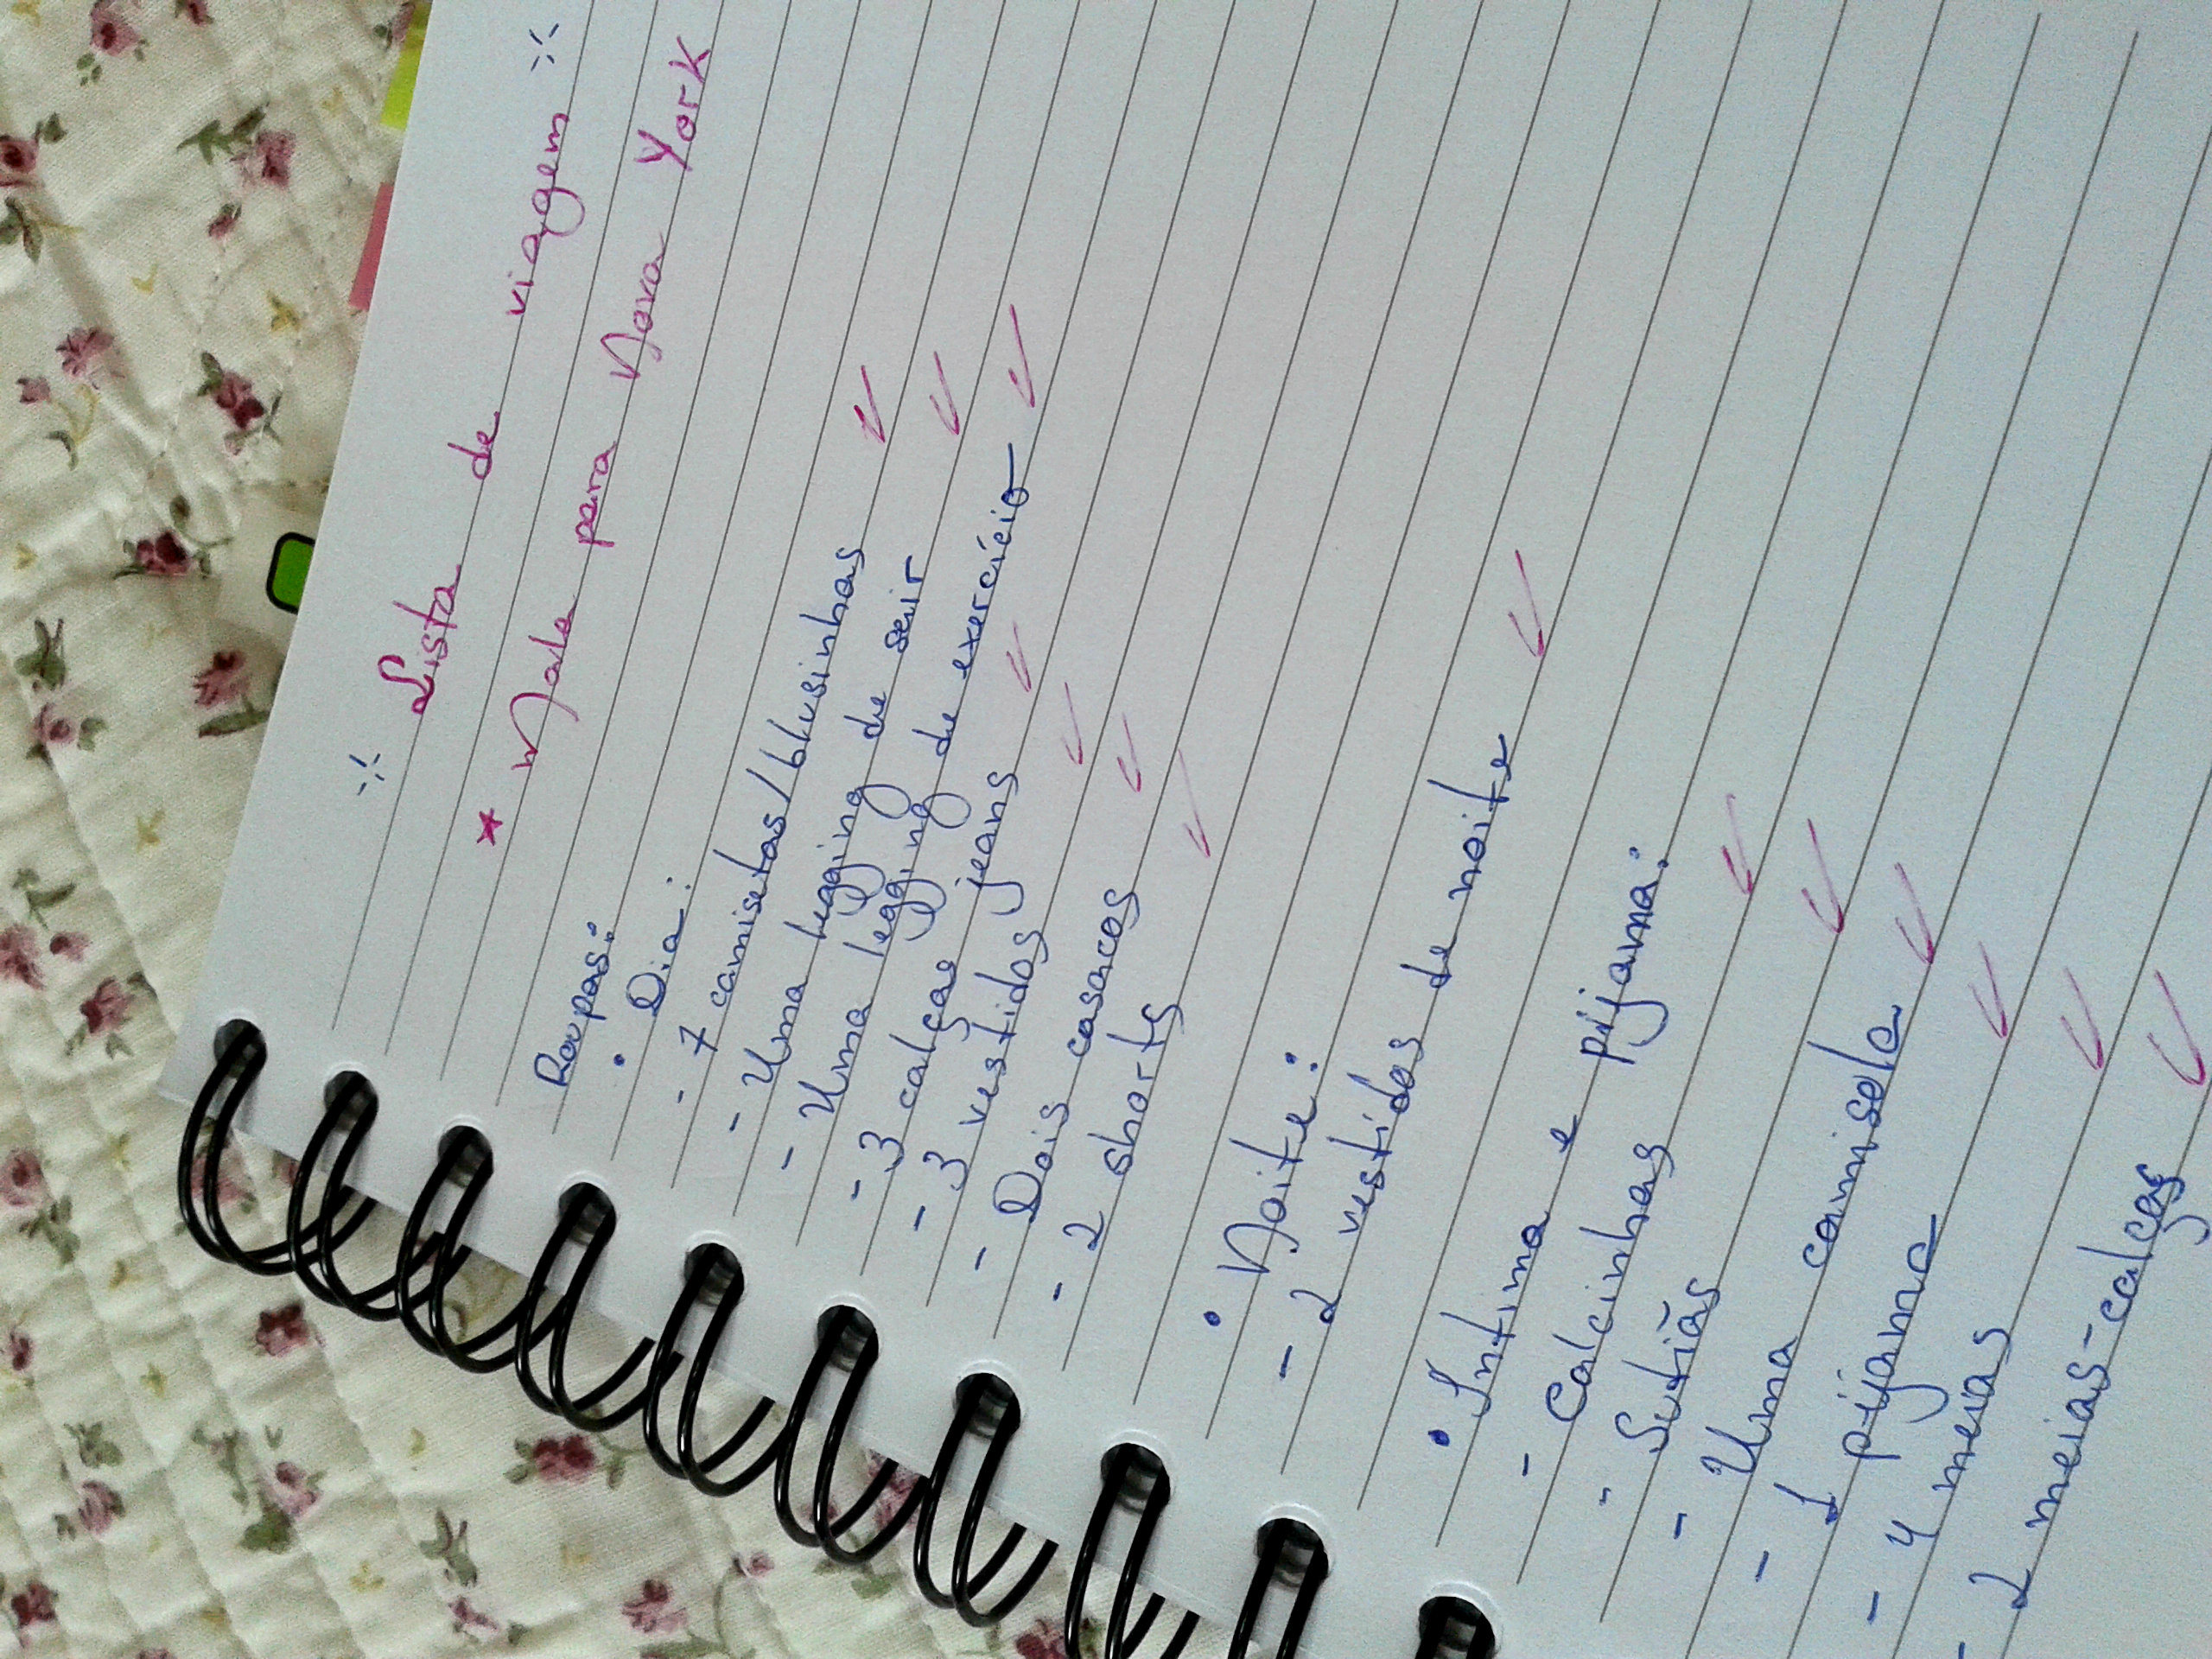 Lista de viagem
* Mala para Nova York
Roupas:
• Dia:
- 7 camisetas/blusinhas ✓
- Uma legging de sair ✓
- Uma legging de exercício ✓
- 3 calças jeans ✓
- 3 vestidos ✓
- Dois casacos ✓
- 2 shorts ✓
• Noite:
- 2 vestidos de noite ✓
• Íntima e pijama:
- Calcinhas ✓
- Sutiãs ✓
- Uma camisola ✓
- 1 pijama ✓
- 4 meias ✓
- 2 meias-calças ✓